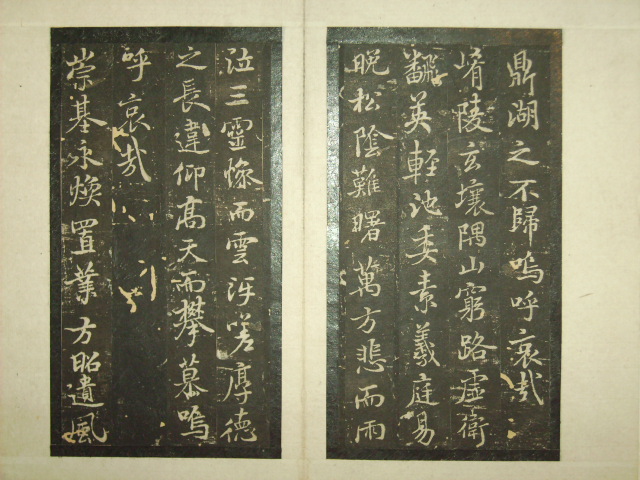 鼎湖之不歸嗚呼哀哉
崤陵玄壤隅山窮路虛衛
翻英輕池委素羲庭易
晚松陰難曙萬方悲而雨
泣三靈慘而雲沍嗟厚德
之長違仰高天而攀慕嗚
呼哀哉
崇基永煥置業方昭遺風